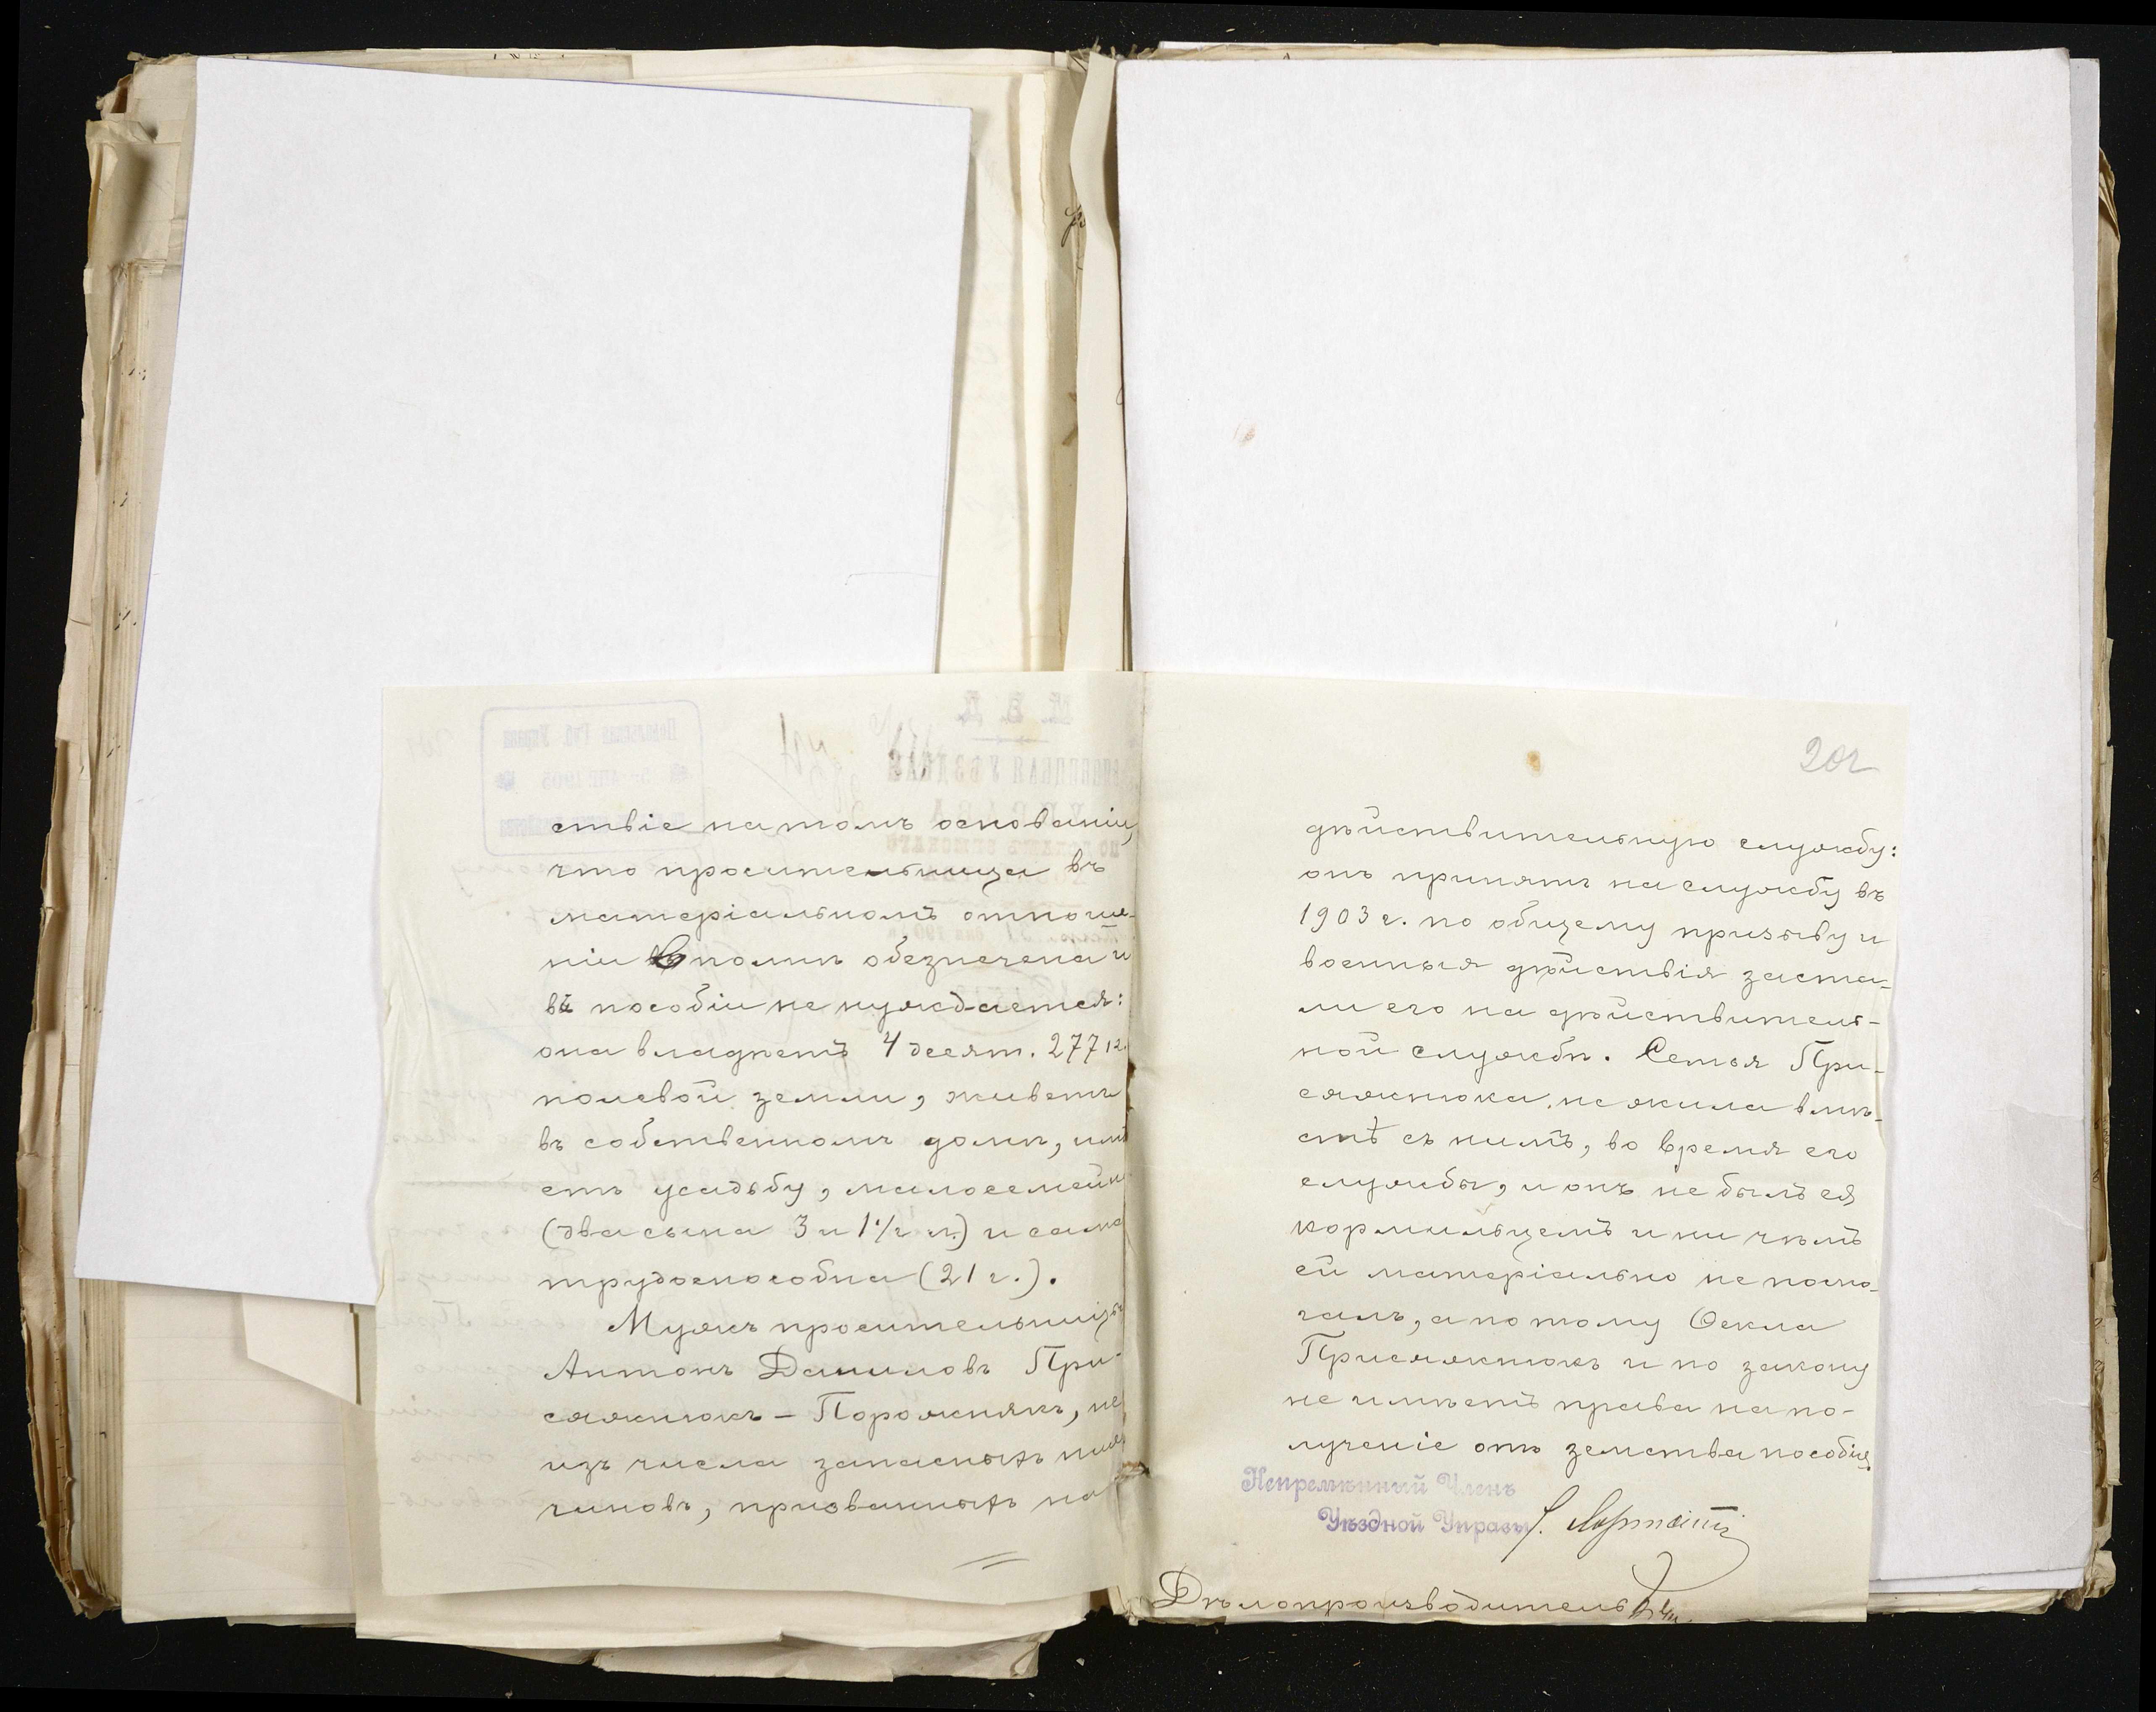 ствіе на томъ основаніи,
что просительница въ
матеріальномъ отноше-
ніи вполнѣ обезпечена и
въ пособіи не нуждается:
она владѣетъ 4 десят. 277
полевой земли, живетъ
въ собственномъ домѣ, имѣ
етъ усадьбу, малосемейна
(два сына 3 и 1½ л.) и сама
трудоспособна (21 г.).
Мужъ просительницы
Антонъ Даниловъ При-
сяжнюкъ - Порожнякъ, не
изъ числа запасныхъ нижн
чиновъ, призванныхъ на
202
дѣйствительную службу:
онъ принятъ на службу въ
1903 г. по общему призыву и
военныя дѣйствія заста-
ли его на дѣйствитель-
ной службѣ. Семья При-
сяжнюка не жила вмѣ-
стѣ съ нимъ, во время его
службы, и онъ не былъ ея
кормильцемъ и ни чѣмъ
ей матеріально не помо-
галъ, а потому Ѳекла
Присяжнюкъ и по закону
не имѣетъ права на по-
лученіе отъ земства пособія.
Непремѣнный Членъ
Уѣздной Управы
Дѣлопроизводитель